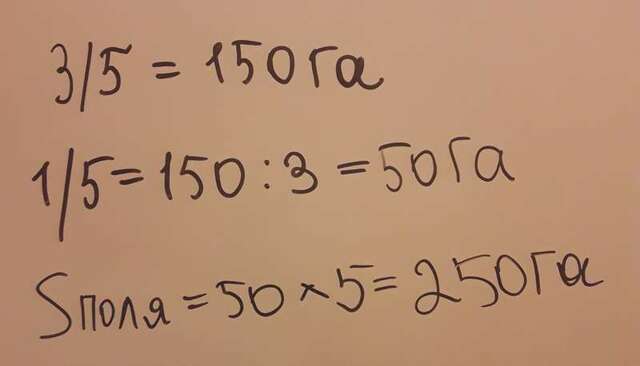 3/5 = 150га
1/5 = 150 : 3 = 50га
Sполя = 50 × 5 = 250га